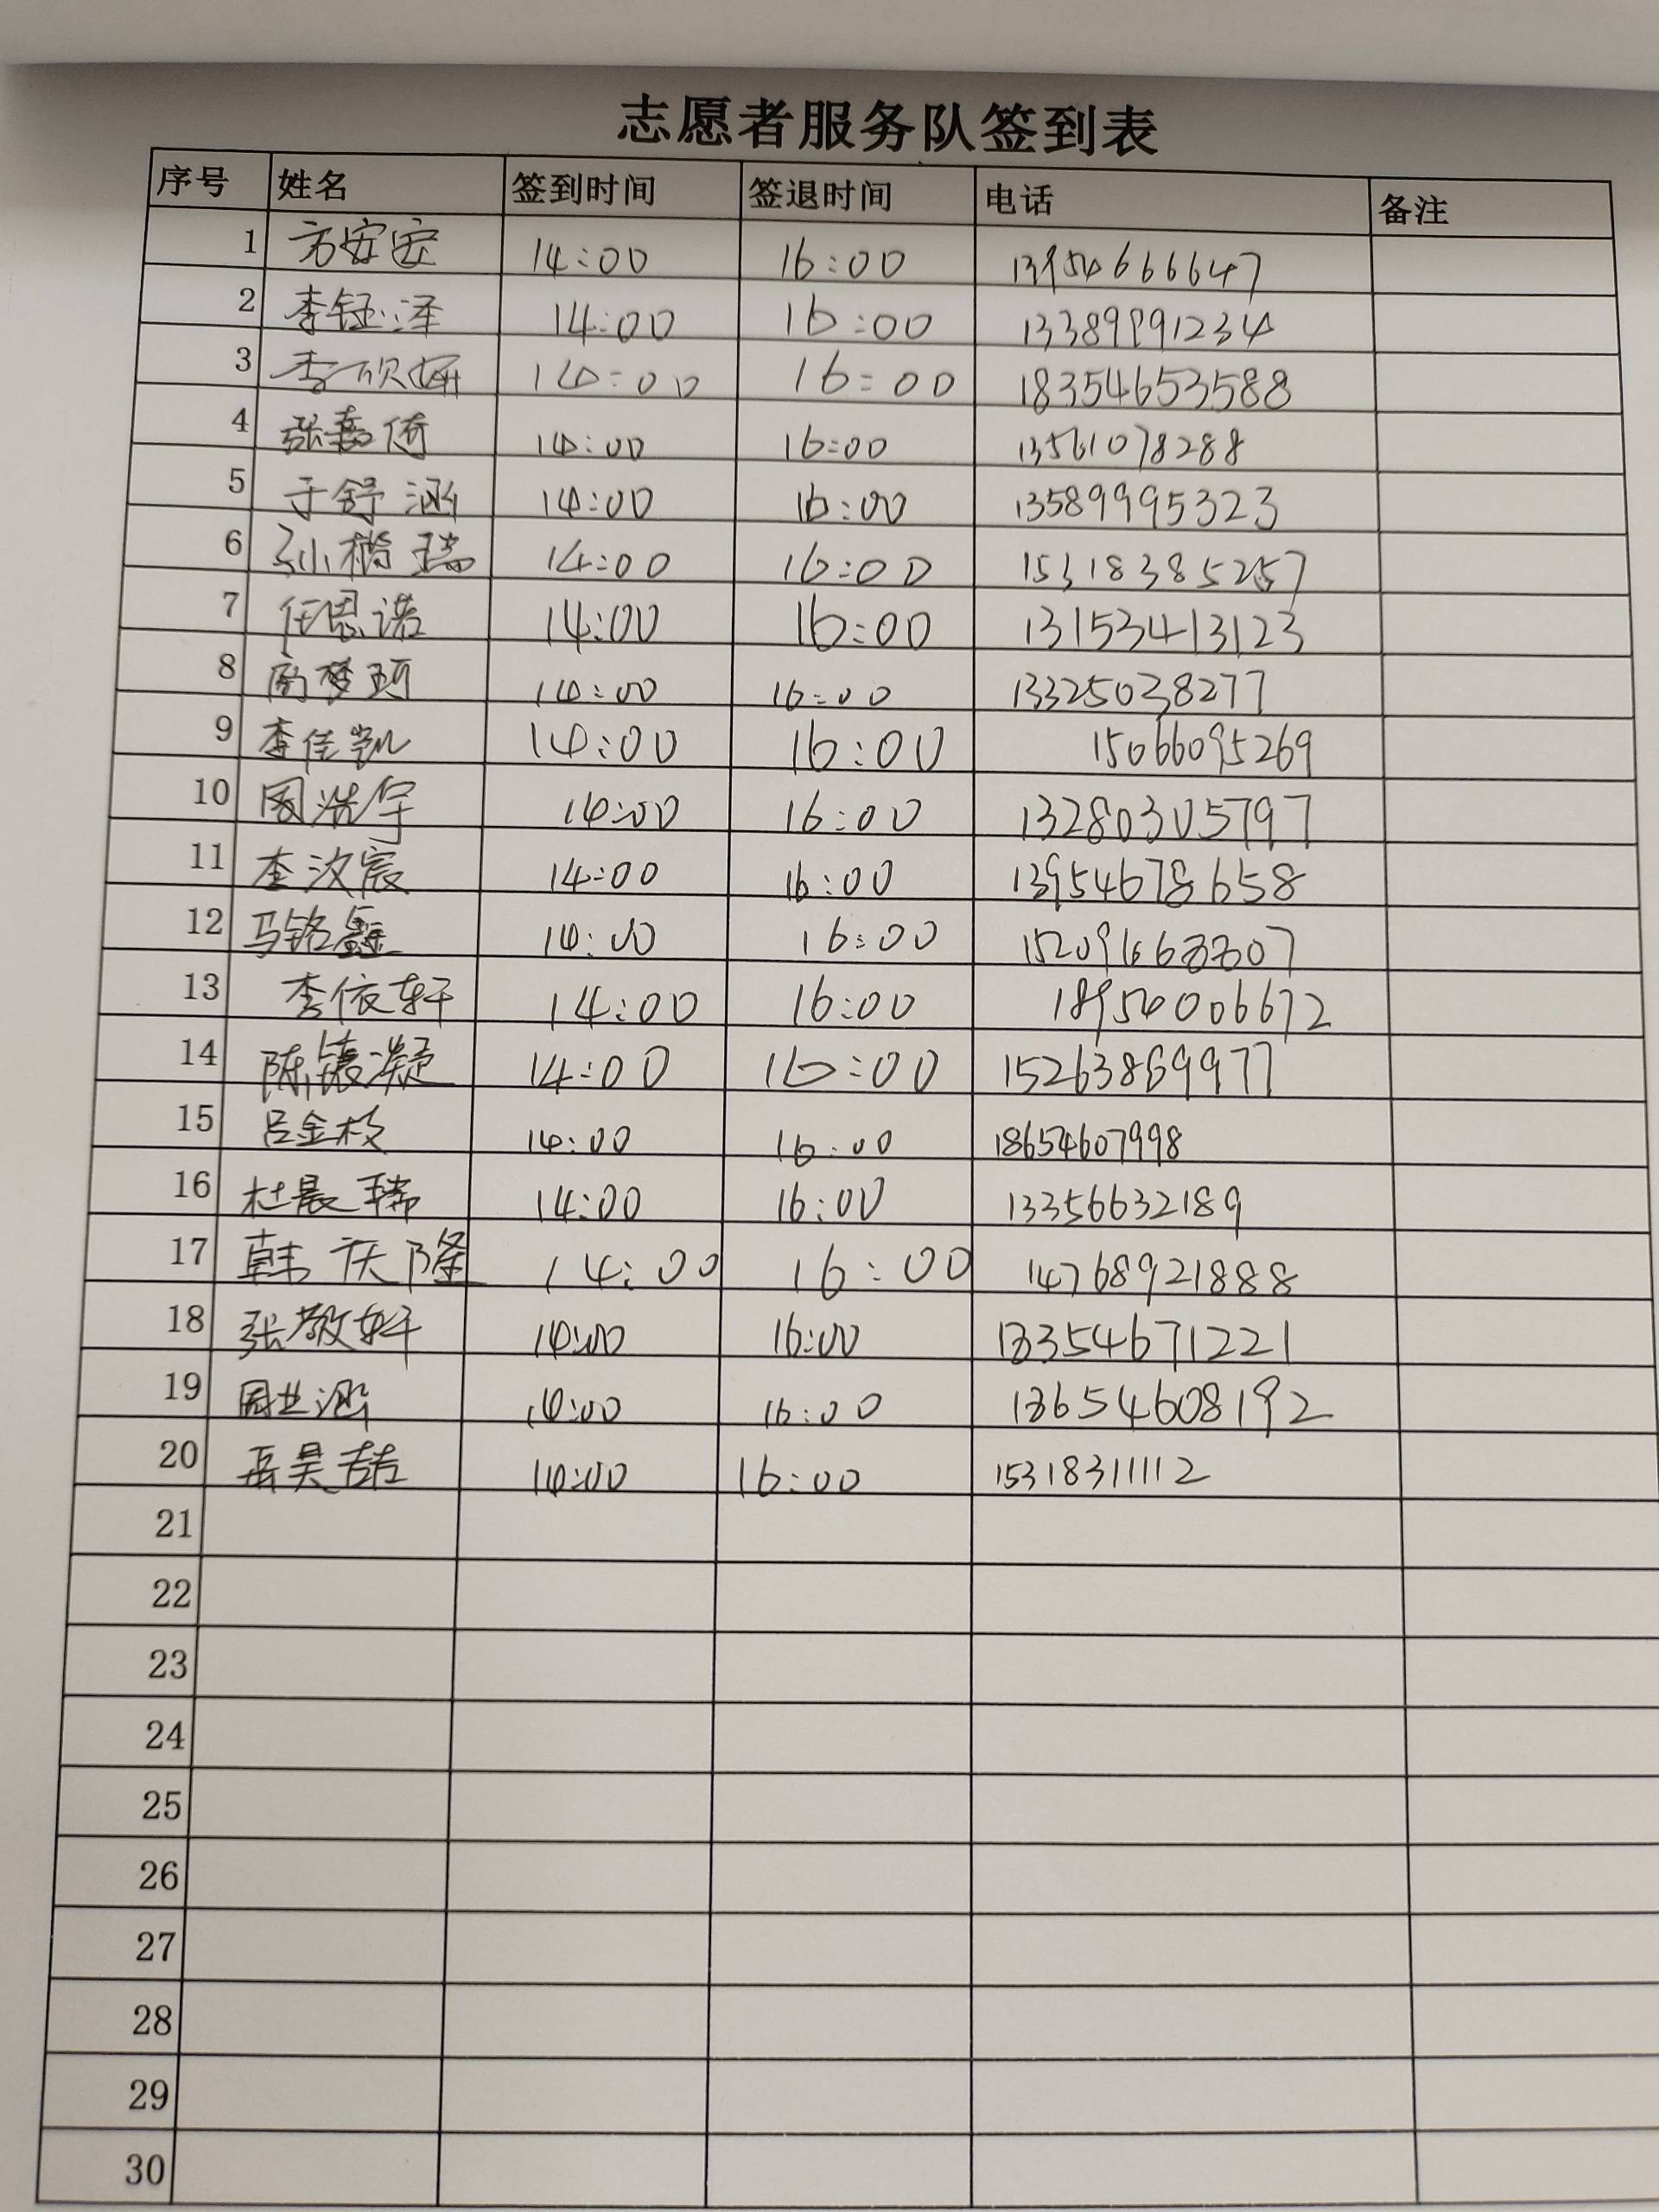 志愿者服务队签到表
序号 姓名 签到时间 签退时间 电话 备注
1 方安安 14:00 16:00 13954666647
2 李钰泽 14:00 16:00 13389991234
3 李硕妍 14:00 16:00 18354653588
4 张嘉倚 14:00 16:00 13561078288
5 于舒涵 14:00 16:00 13589995323
6 孙楷瑞 14:00 16:00 15318385257
7 任思诺 14:00 16:00 13153413123
8 14:00 16:00 13325038277
9 李佳凯 14:00 16:00 15066095269
10 周浩宇 14:00 16:00 13280305797
11 李汶宸 14:00 16:00 13954678658
12 马铭鑫 14:00 16:00
13 李依轩 14:00 16:00 18954006672
14 陈镱凝 14:00 16:00 15263869977
15 吕金枝 14:00 16:00 18654607998
16 杜晨瑞 14:00 16:00 13356632189
17 韩庆隆 14:00 16:00 14768921888
18 张敬轩 14:00 16:00
19 周业涵 14:00 16:00
20 岳昊喆 14:00 16:00 15318311112
21
22
23
24
25
26
27
28
29
30